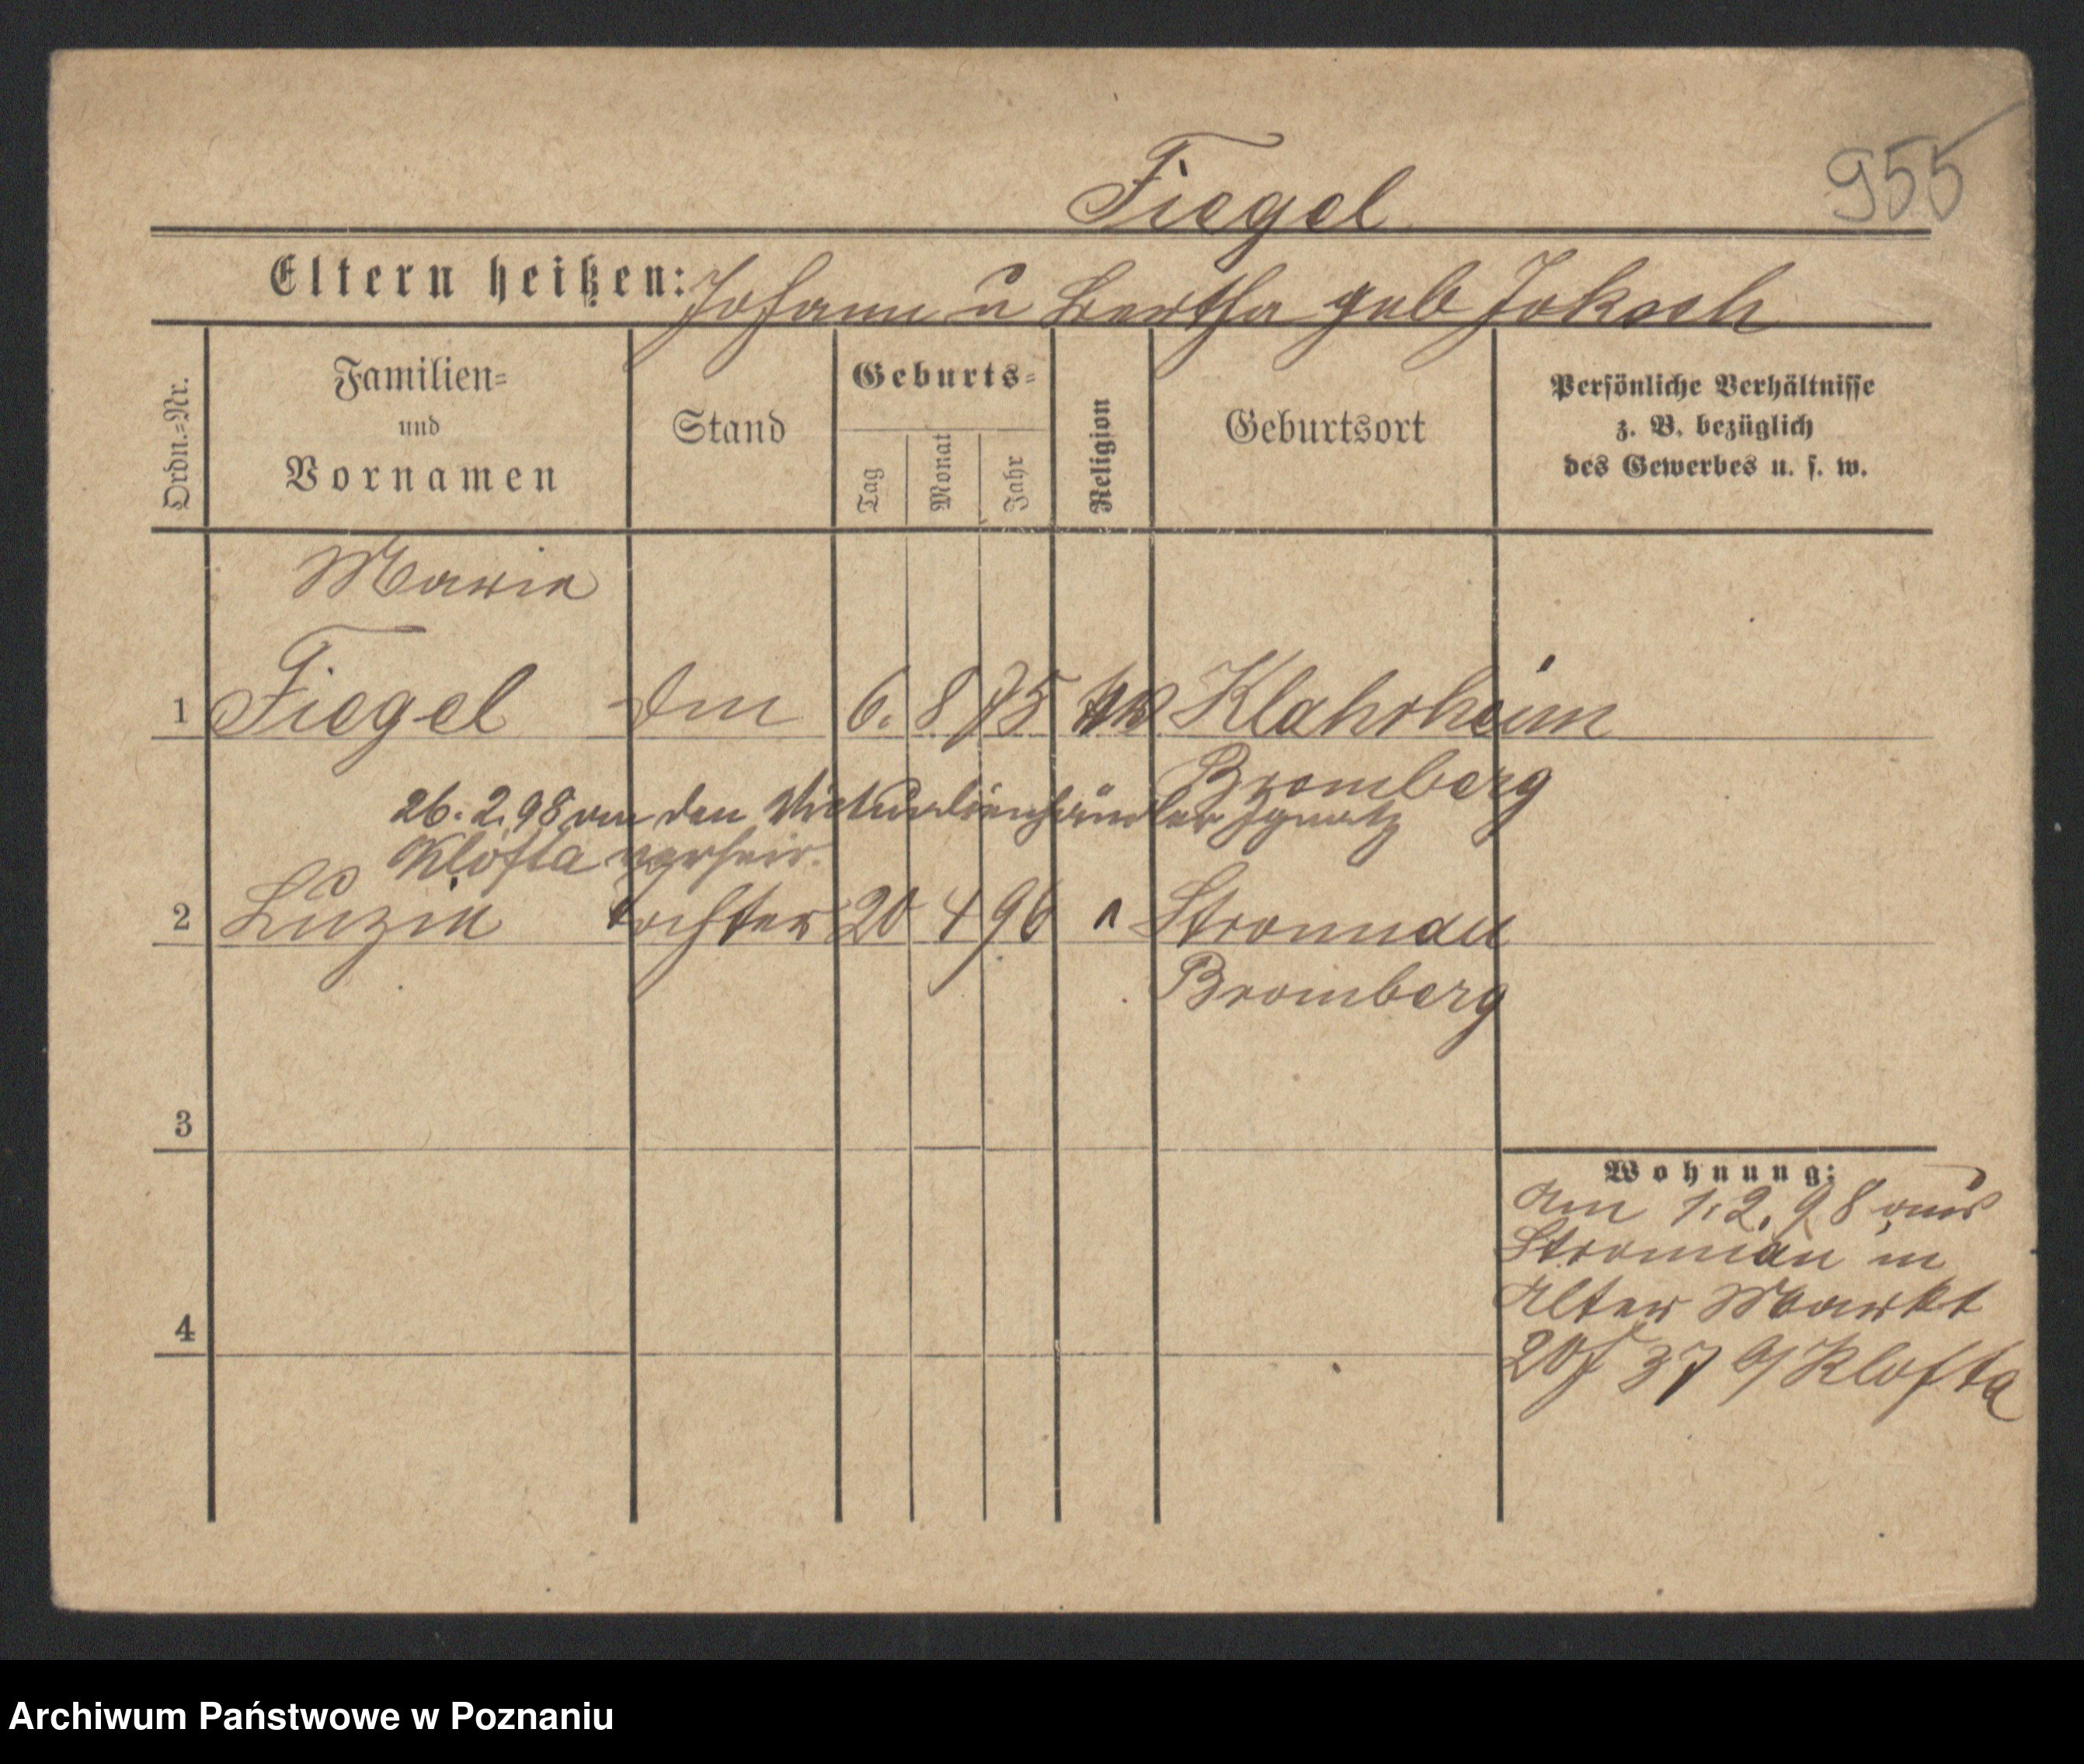 955
Fiegel
Eltern heißen: Johann u Bertha geb Joksch
Ordn.=Nr.
Familien=
und
Vornamen
Stand
Geburts=
Tag
Monat
Jahr
Religion
Geburtsort
Persönliche Verhältnisse
z. B. bezüglich
des Gewerbes u. s. w.
Maria
1 Fiegel 6. 8 75 Klahrheim
Bromberg
26.2.98 an den Victualienhändler Ignatz
Klofta verheir.
2 Luzia Tochter 20 4 96 Stronnau
Bromberg
3
Wohnung:
Am 1.2.98 aus
Stronnau in
Alter Markt
4
37 b/Klofta
Archiwum Państwowe w Poznaniu